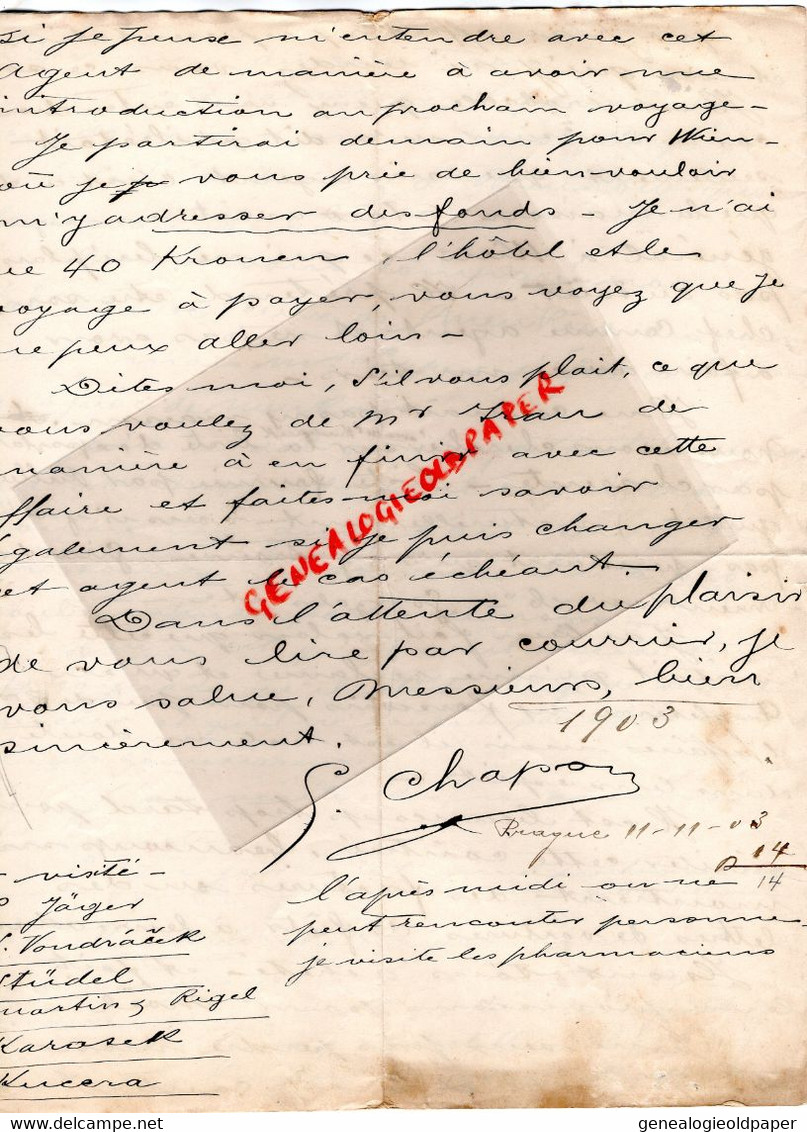 si je peux m'entendre avec cet
Agent de manière à avoir une
introduction au prochain voyage -
Je partirai demain pour Wien -
où je vous prie de bien vouloir
m'y adresser des fonds - Je n'ai
ue 40 Kronen, l'hôtel et le
voyage à payer, vous voyez que je
ne peux aller loin -
Dites moi, s'il vous plait, ce que
vous voulez de Mr de
manière à en finir avec cette
ffaire et faites-moi savoir
également si je puis changer
et agent le cas échéant.
Dans l'attente du plaisir
de vous lire par courrier, je
vous salue, Messieurs, bien
sincèrement.
1903
Chapon
Prague 11-11-03
14
14
- visité -
Jäger
Vondráček
Stüdel
Martin & Rigel
Karasek
Kucera
l'après midi on ne
peut rencontrer personne -
je visite les pharmaciens
GENEALOGIEOLDPAPER
genealogieoldpaper